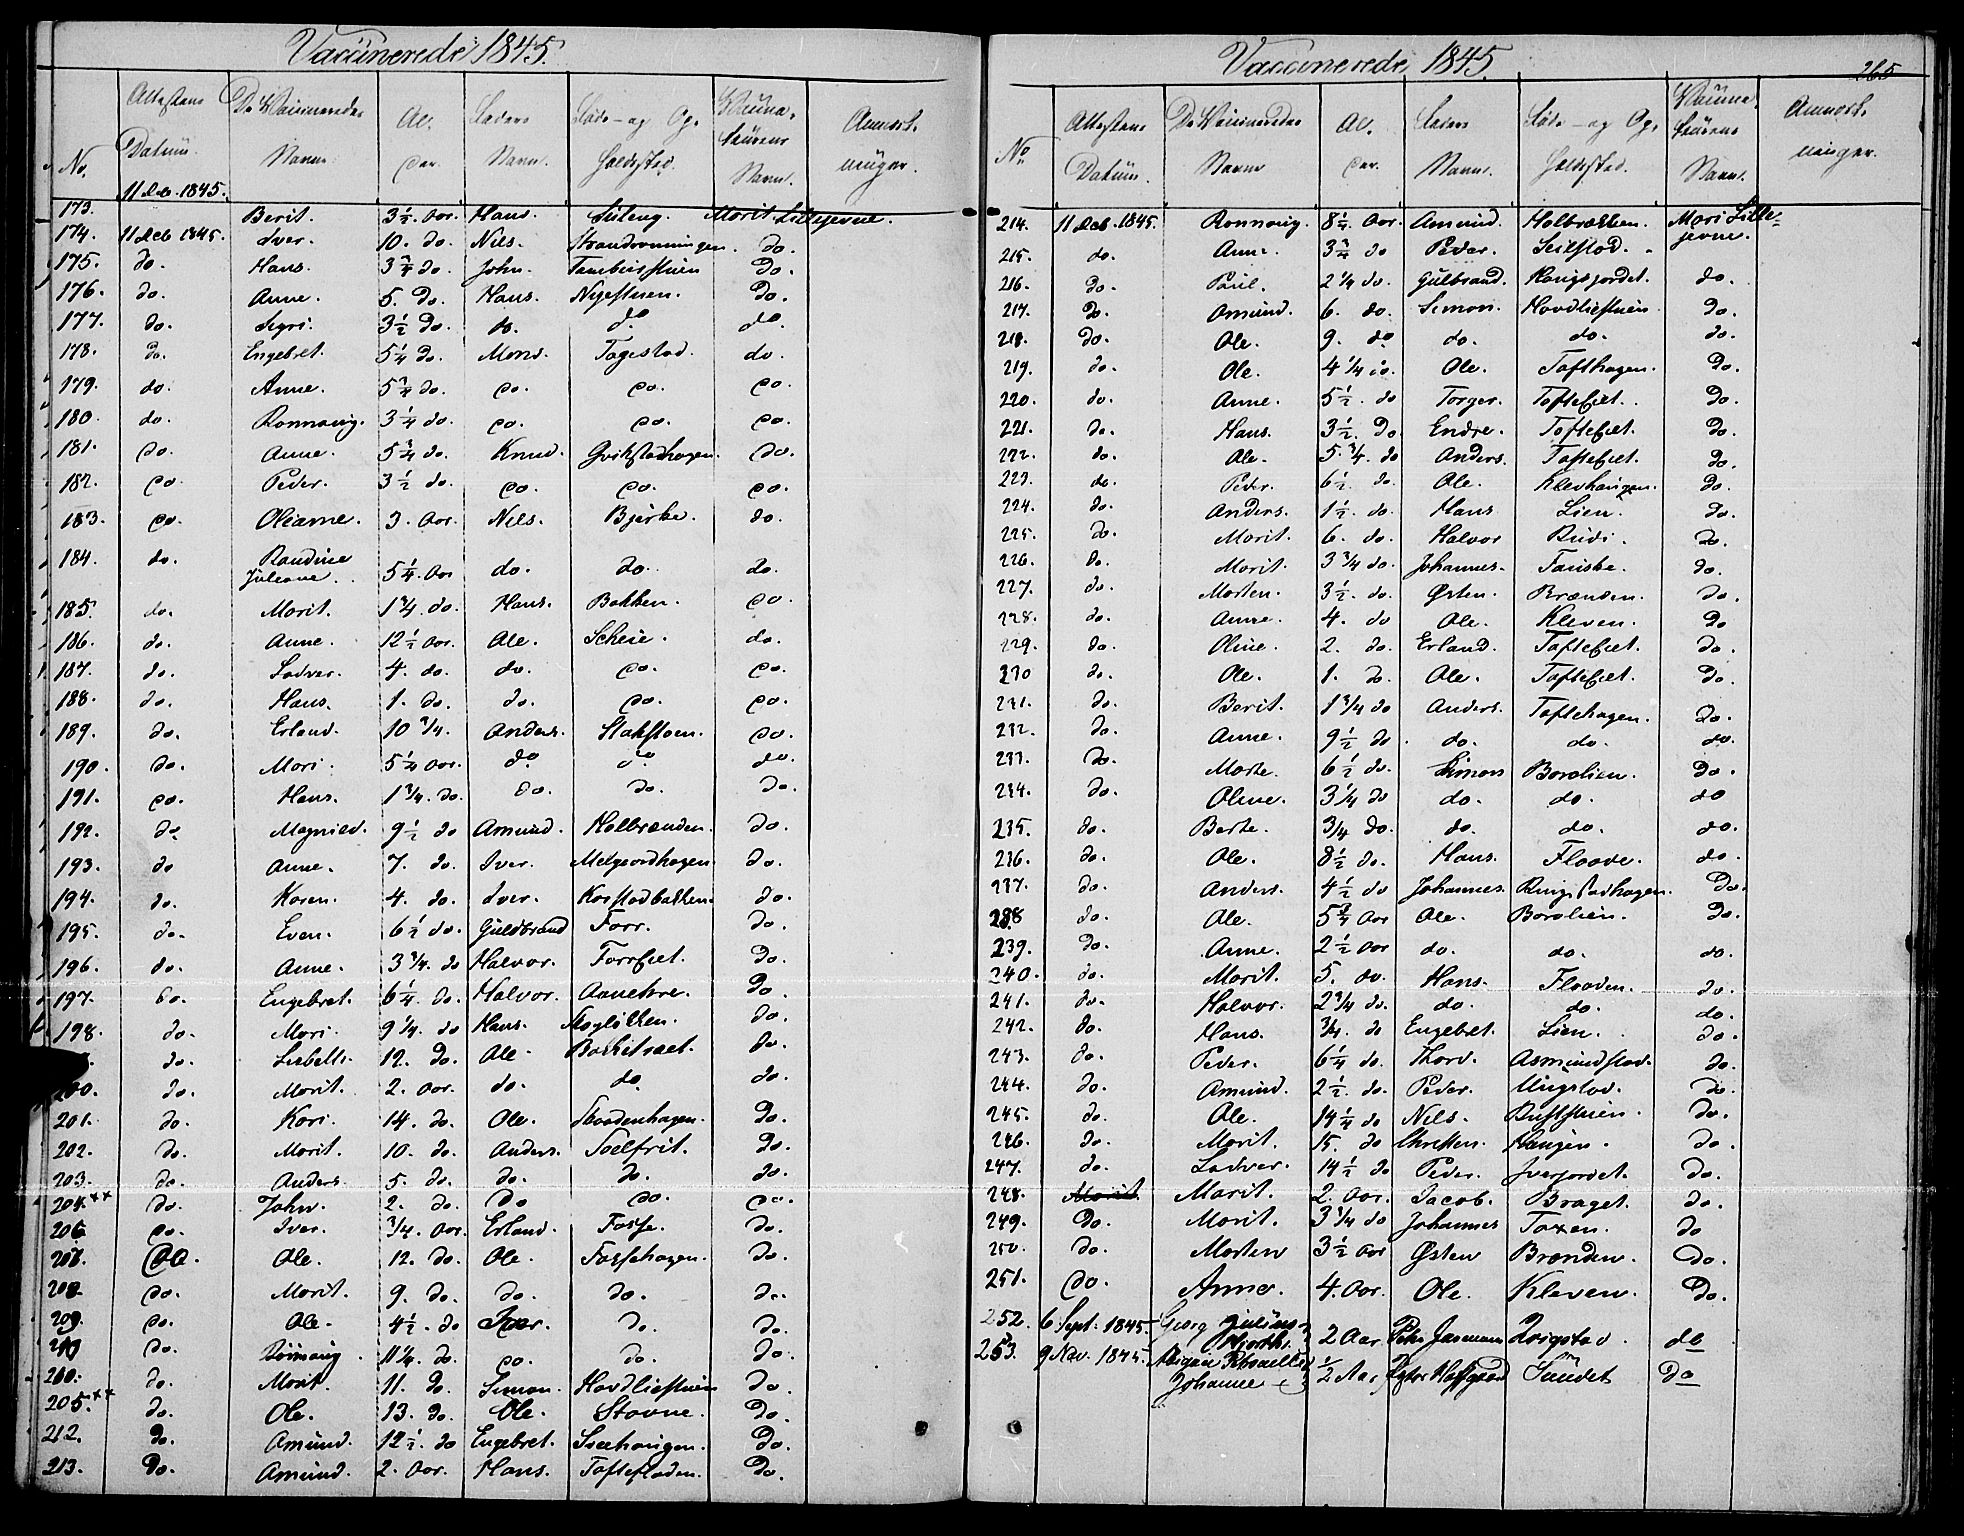 Vaccinerede 1845.
No. Attestens Datum. De Vaccineredes Navne. Al- der. Faders Navn. Føde- og Op- holdssted. Vaccina- teurens Navn. Anmærk- ninger.
173. 11 Dcb. 1845. Berit. 3 1/2. Aar. Hans. Marit Lillejevne.
174. 11 Dcb 1845. Iver. 10. do. Nils. Strandrønningen. do.
175. do. Hans. 3 3/4 do. John. do.
176. do. Anne. 5. do. Hans. Nigestuen. do.
177. do. Sigri. 3 1/2 do. do. do do.
178. do. Engebret. 5 1/4 do. Mons. Tagestad. do.
179. do. Anne. 5 3/4 do. do. do. do.
180. do. Rønnaug. 3 1/4 do. do. do. do.
181. do. Anne. 5 3/4 do. Knud. do.
182. do. Peder. 3 1/2 do. do. do. do.
183. do. Oleanne. 3. Aar. Nils. Bjerke. do.
184. do. Randine Juleane. 5 1/4. Aar do. do. do.
185. do. Marit. 1 3/4. do. Hans. Bakken. do.
186. do. Anne. 12 1/2 Aar. Ole. Scheie. do.
187. do. Sadver. 4. do. do. do. do.
188. do. Hans. 1. do. do. do. do.
189. do. Erland. 10 3/4. Anders. Stakstoen. do.
190. do. Mari. 5 1/4 Aar. do do do.
191. do. Hans. 1 3/4. do. do. do. do.
192. do. Magnild. 9 1/2 do Amund. Holbrænden. do.
193. do Anne. 7. do. Iver. Melgaardhagen do.
194. do. Karen. 4. do. Iver. Korstadbakken. do.
195. do. Even. 6 1/2 do. Guldbrand Forr. do.
196. do. Anne. 3 3/4. do Halvor. ForrEiet. do.
197. do. Engebret. 6 1/4. do. Halvor. do.
198. do. Mari. 9 1/4. do Hans. do.
do. Lisbeth. 12. do. Ole. do
200. do. Marit. 2. Aar. do. do. do.
201. do. Kari. 14. do. Ole. Skaadenhagen. do.
202. do. Marit. 10. do. Anders. do.
203. do. Anders 5. do. do. do. do.
204.** do. John. 2. do. do do. do.
206 do. Iver. 3/4. Aar. Erland. Fosse. do.
do. Ole. 12. do. Ole. Fossehagen. do.
208. do. Marit. 9. do. do. do. do.
209. do. Ole. 4 1/2. do Iver. do. do.
do. Rønnaug 11 1/4. do. do. do. do.
do. Marit. 11. do. Simon. Hovdliestuen do.
205.** do. Ole. 13. do. Ole. Stovne. do.
212. do. Amund. 12 1/2. do Engebret. do.
213. do. Amund. 2. Aar. Hans. Toftefladen. do.
Vaccinerede 1845.
265
No Attestens Datum. De Vaccineredes Navne Al- der. Faders Navn. Føde- og Op- holdssted. Vaccina- teurens Navn. Anmærk- ninger.
214. 11 Dcb. 1845. Rønnaug. 8 1/4. Aar. Amund. Holbrækken. Mari Lille- jevne.
215. do. Anne. 3 3/4 do Peder. Seilstad.
216. do. Paul. 2 1/4 do. Gulbrand. Haugsjordet. do.
217. do. Amund. 6. do. Simon. Hovdliestuen do.
218. do. Ole. 9. do do. do. do.
219. do. Ole. 4 1/4 do. Ole. Tofthagen. do.
220. do. Anne. 5 1/2. do Torger. TofteEiet. do.
221. do. Hans. 3 1/2. do Endre. TofteEiet. do.
222. do. Ole. 5. 3/4. do Anders. TofteEiet. do.
223. do. Peder. 6 1/2. do. Ole. Klevhaugen. do.
224. do. Anders. 1 1/2. do. Hans Lien. do.
225. do. Marit. 6. do. Halvor Rudi. do.
226. do. Marit. 3 3/4 do. Johannes. do.
227. do. Morten. 3 1/2. do. Østen. Brænden. do.
228. do. Anne. 4. do. Ole. Kleven. do
229. do. Oline. 2. do. Erland. TofteEiet. do.
230 do. Ole. 1. do. Ole. TofteEiet. do.
231. do. Berit. 1 3/4 do Anders. Toftehagen. do.
232. do. Anne. 9 1/2 do. do. do. do.
233. do. Marte. 6 1/2 do. Simon Boralien. do.
234. do. Oline. 3 1/4 do do. do. do
235. do. Berte. 3/4 do. do. do. do.
236. do. Ole. 8 1/2 do. Hans. Flaade. do.
237. do. Anders. 4 1/2 do Johannes. Ringstadhagen. do.
238 do. Ole. 5 3/4 Aar Ole. Boralien. do.
239. do. Anne. 2 1/2 Aar do. do. do.
240. do. Marit. 5. do. Hans. Flaaden. do.
241. do. Halvor. 2 3/4 do. do. do. do.
242. do. Hans. 3/4. do Engebret. Lien. do.
243. do. Peder. 6 1/4 do. Thord. Asmundstad. do.
244. do. Amund. 2 1/2. do. Peder. do.
245. do. Ole. 14 1/4 do Nils. Ruststuen. do.
246. do. Marit. 15. do Christen. Haugen. do.
247. do. Ladver. 14 1/2 do Peder. Iverjordet. do.
248. Marit. Marit. 2. Aar. Jacob. Braget. do.
249. do. Marit. 3 3/4 do Johannes do
250. do. Morten 3 1/2 Aar Østen Brænden. do.
251. do. Anne. 4. Aar. Ole. Kleven. do.
252. 6 Sept. 1845. Georg Julius Hjorth. 2 Aar Ringstad. do
253. 9 Nov. 1845. Johanne 1/2 Aar Sundet do